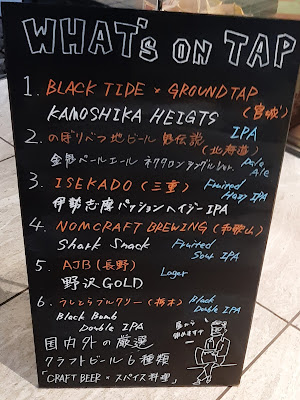 WHAT's ON TAP
1. BLACK TIDE × GROUNDTAP
(宮城)
KAMOSHIKA HEIGTS IPA
2. のぼりべつ地ビール 鬼伝説
(北海道)
金鬼ペールエール ネクタロンシングルver. Pale Ale
3. ISEKADO (三重) Fruited Hazy IPA
伊勢志摩パッションヘイジーIPA
4. NOMCRAFT BREWING (和歌山)
Shark Snack Fruited Sour IPA
5. AJB (長野) Lager
野沢GOLD
6. うしとらブルワリー (栃木) Black Double IPA
Black Bomb
Double IPA
国内外の厳選
クラフトビール6種類
「CRAFT BEER × スパイス料理」